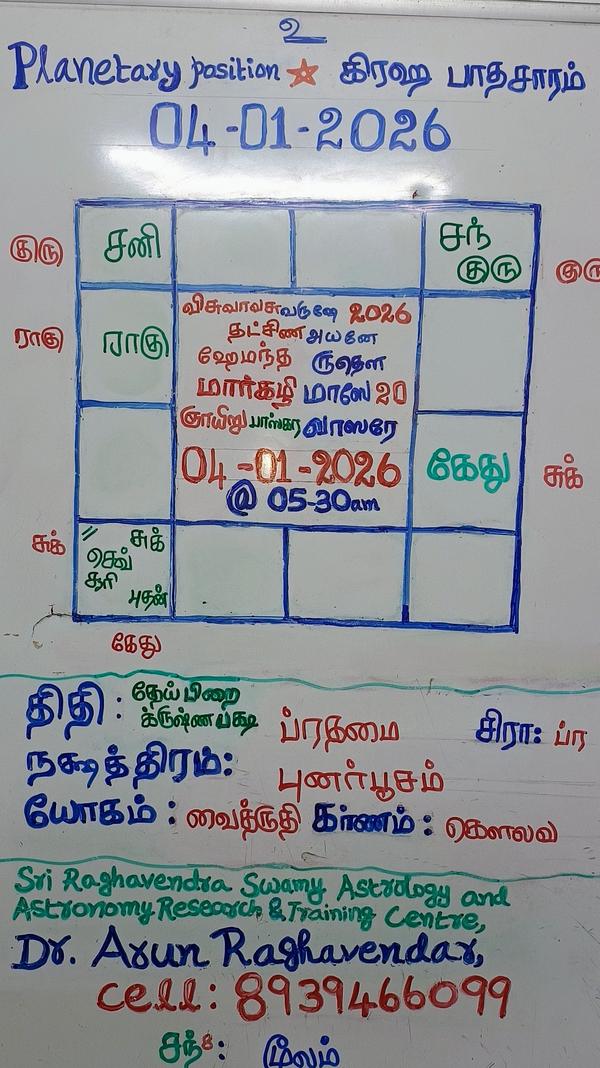 உ
Planetary position ☆ கிரஹ பாதசாரம்
04-01-2026
குரு சனி சந் குரு குரு
விசுவாவசு வருஷே 2026
தட்சிண அயனே
ராகு ராகு ஹேமந்த ருதௌ
மார்கழி மாஸே 20
ஞாயிறு பாஸ்கர வாஸரே
04-01-2026 கேது சுக்
@ 05-30am
சுக் " சுக்
செவ்
சூரி புதன்
கேது
திதி : தேய்பிறை
க்ருஷ்ணபக்ஷ ப்ரதமை சிரா: ப்ர
நக்ஷத்திரம்: புனர்பூசம்
யோகம் : வைத்ருதி கரணம் : கௌலவ
Sri Raghavendra Swamy Astrology and
Astronomy Research & Training Centre,
Dr. Arun Raghavendar,
cell: 8939466099
சந்: மூலம்